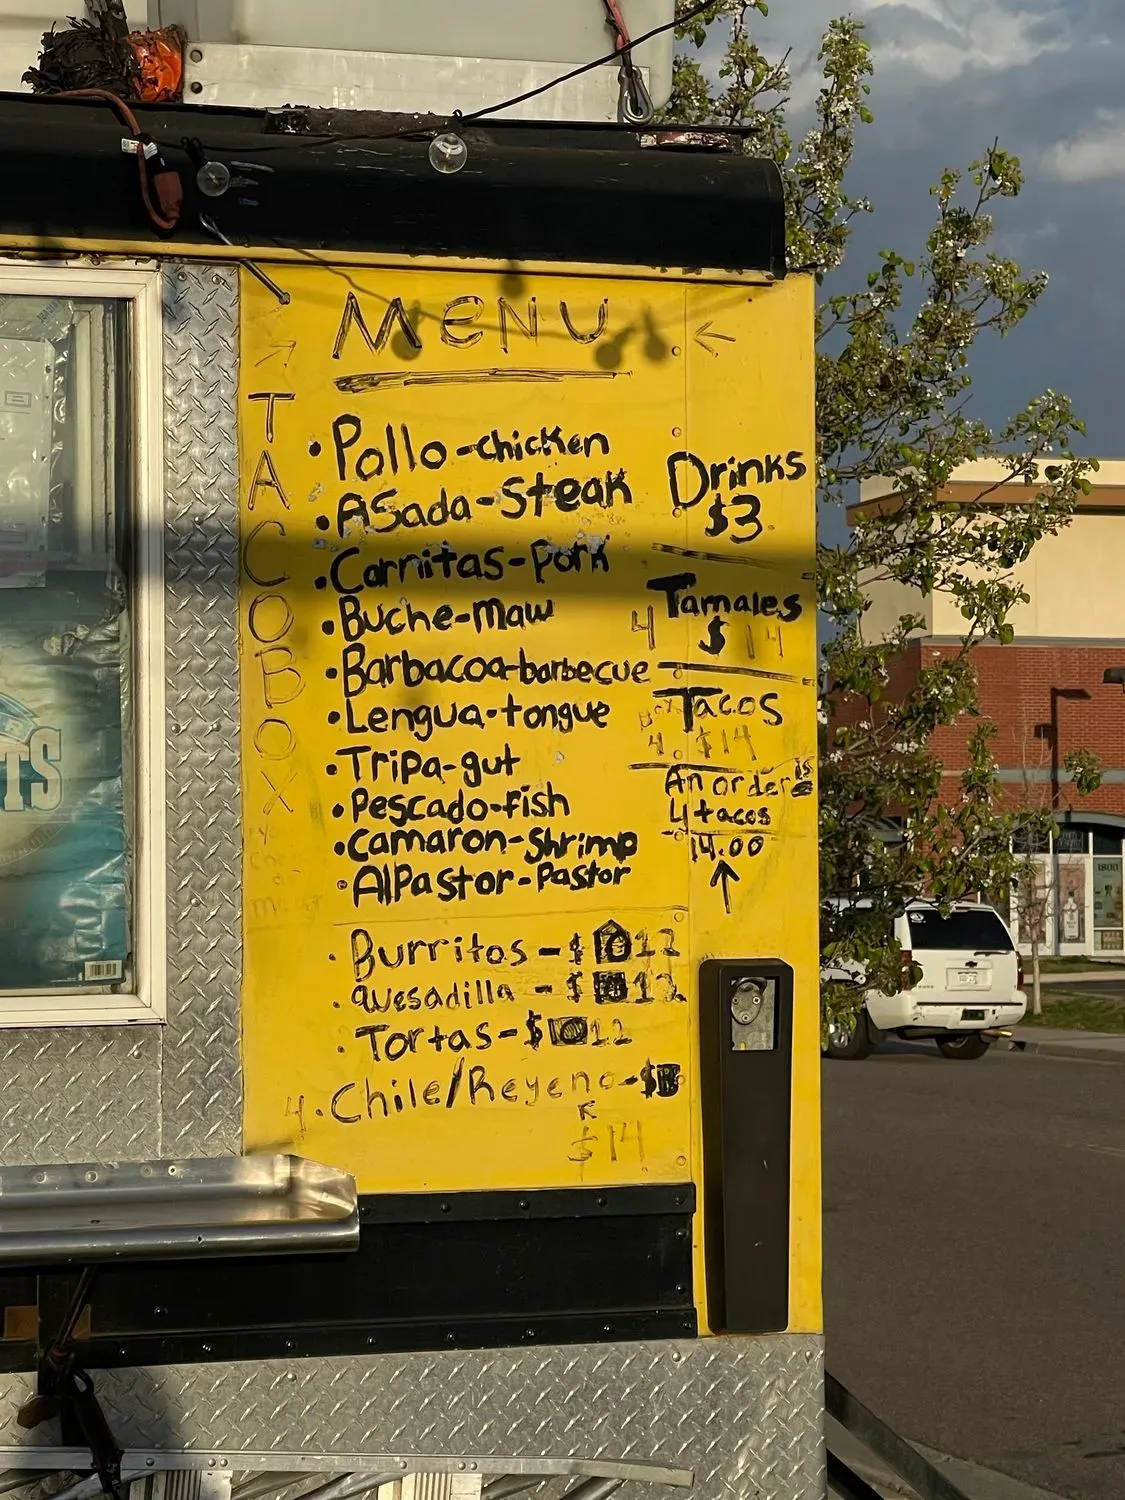 MENU
TACOBOX
• Pollo-chicken
• ASada-Steak
• Carnitas-Pork
• Buche-maw
• Barbacoa-barbecue
• Lengua-tongue
• Tripa-gut
• Pescado-fish
• Camaron-Shrimp
• AlPastor-Pastor
• Burritos-$ 12
• Quesadilla - $ 12
• Tortas-$ 12
4 • Chile/Reyeno-$
$14
Drinks
$3
Tamales
4 $14
Tacos
4. $14
An order is
4 tacos
14.00
TS